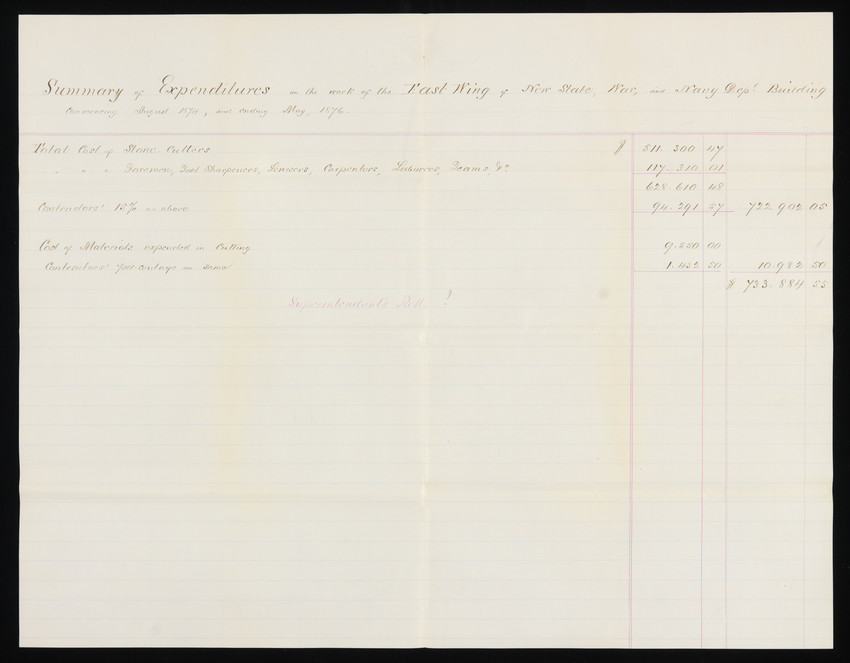 Summary of Expenditures on the work of the East Wing of New State, War, and Navy Dept. Building
Commencing August 1874, and ending May, 1876.
Total Cost of Stone Cutters $ 511.300 47
" " " Foremen, Tool Sharpeners, Carpenters, Laborers, Teams, &c 117.310 01
628.610 48
Contractors' 15% as above 94.291 57 722.902 05
Cost of Materials expended in Cutting 9.550 00
Contractors' per-centage on same 1.432 50 10.982 50
$ 733.884 55
Superintendent's Roll ?